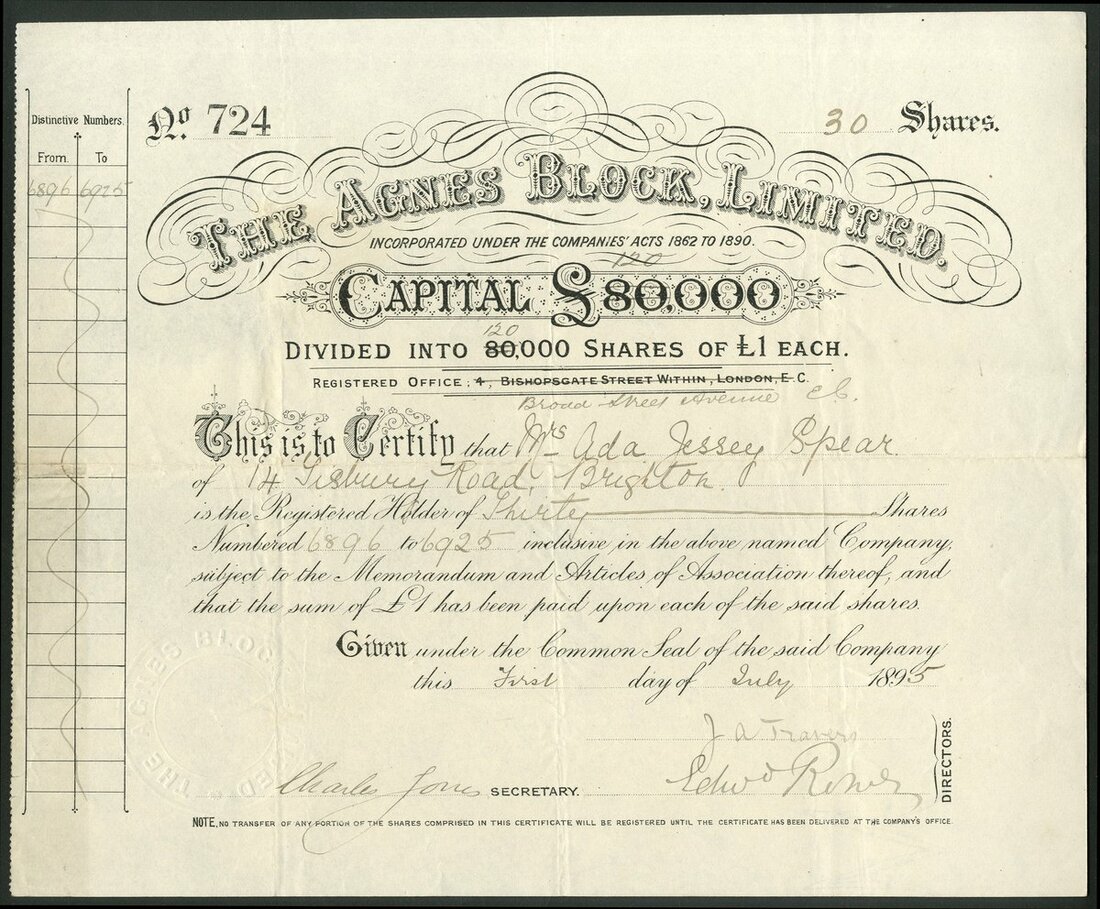 Distinctive Numbers.
From. To
6896 6925
No. 724
30 Shares.
THE AGNES BLOCK, LIMITED.
INCORPORATED UNDER THE COMPANIES' ACTS 1862 TO 1890.
120
CAPITAL £80,000
120
DIVIDED INTO 80,000 SHARES OF £1 EACH.
REGISTERED OFFICE: 4, BISHOPSGATE STREET WITHIN, LONDON, E.C.
Broad Street Avenue E.C.
This is to Certify that Mrs Ada Jessey Spear.
of 14 Tisbury Road, Brighton.
is the Registered Holder of Thirty Shares
Numbered 6896 to 6925 inclusive, in the above named Company,
subject to the Memorandum and Articles of Association thereof, and
that the sum of £1 has been paid upon each of the said shares.
Given under the Common Seal of the said Company
this First day of July 1895
J A Travers
Charles Jones SECRETARY. Edwd
DIRECTORS.
THE AGNES BLOCK
NOTE, NO TRANSFER OF ANY PORTION OF THE SHARES COMPRISED IN THIS CERTIFICATE WILL BE REGISTERED UNTIL THE CERTIFICATE HAS BEEN DELIVERED AT THE COMPANY'S OFFICE.